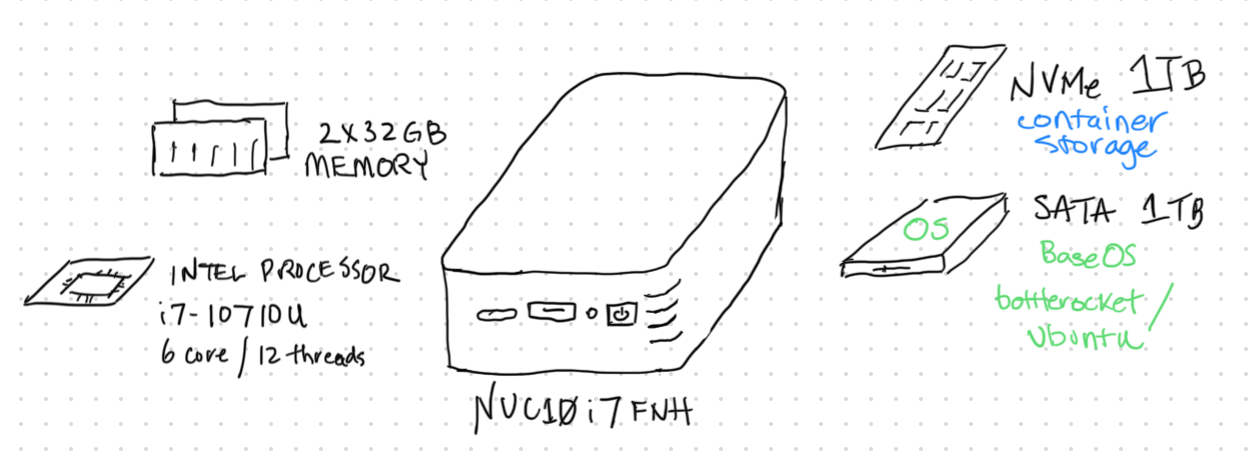 2X32GB
MEMORY
INTEL PROCESSOR
i7-10710U
6 core / 12 threads
NUC10i7FNH
NVMe 1TB
container
storage
OS
SATA 1TB
BaseOS
bottlerocket /
Ubuntu